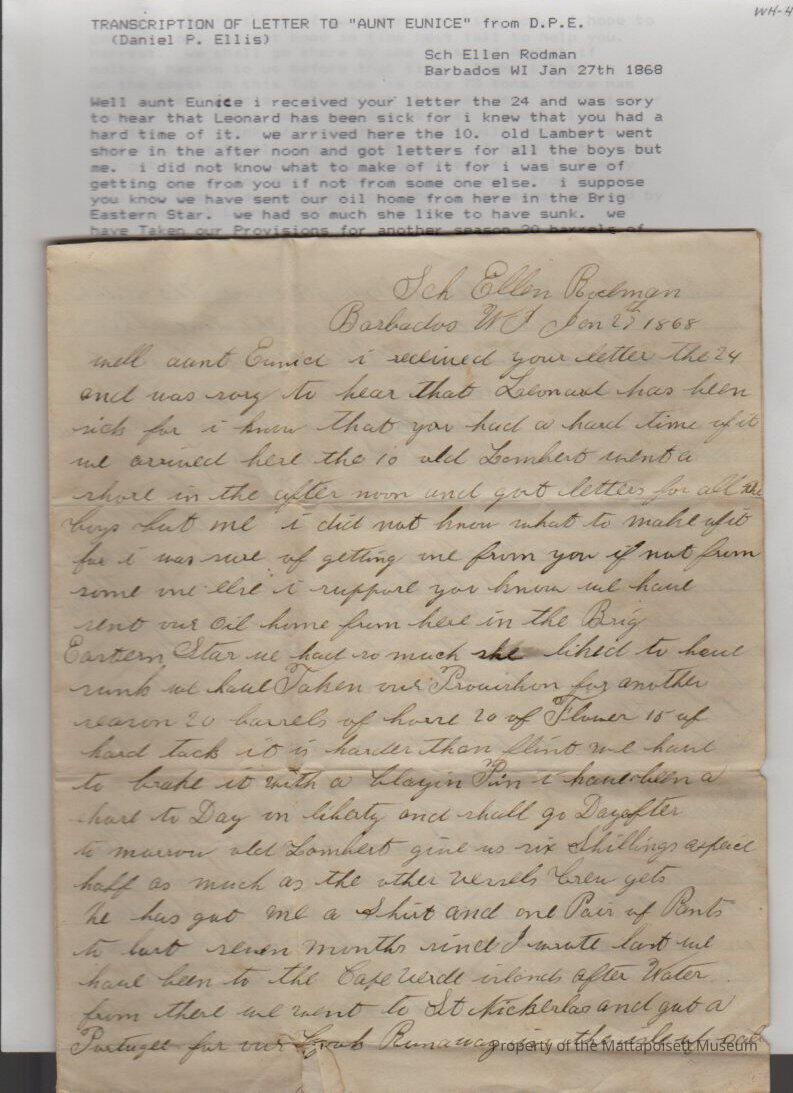 WH-4
TRANSCRIPTION OF LETTER TO "AUNT EUNICE" from D.P.E.
(Daniel P. Ellis)
Sch Ellen Rodman
Barbados WI Jan 27th 1868
Well aunt Eunice i received your letter the 24 and was sory
to hear that Leonard has been sick for i knew that you had a
hard time of it. we arrived here the 10. old Lambert went
shore in the after noon and got letters for all the boys but
me. i did not know what to make of it for i was sure of
getting one from you if not from some one else. i suppose
you know we have sent our oil home from here in the Brig
Eastern Star. we had so much she like to have sunk. we
have Taken our Provisions for another season 20 barrels of
Sch Ellen Rodman
Barbados W I Jan 27th 1868
well aunt Eunice i received your letter the 24
and was sory to hear that Leonard has been
sick for i knew that you had a hard time of it
we arrived here the 10 old Lambert went a
shore in the after noon and got letters for all the
boys but me i did not know what to make of it
for i was sure of getting one from you if not from
some one else i suppose you know we have
sent our oil home from here in the Brig
Eastern Star we had so much she liked to have
sunk we have Taken our Provishon for another
season 20 barrels of horse 20 of Flower 15 of
hard tack it is harder than flint we have
to brake it with a blayin Pin i have been a
shore to Day on liberty and shall go Day after
to morrow old Lambert give us six Shillings apeice
half as much as the other vessels Crew gets
he has got me a Shirt and one Pair of Pants
to last seven months since I wrote last we
have been to the Cape Verde islands after Water
from there we went to St Nickerlas and got a
Portugee for our Cook Runaway in the isle of
Property of the Mattapoisett Museum